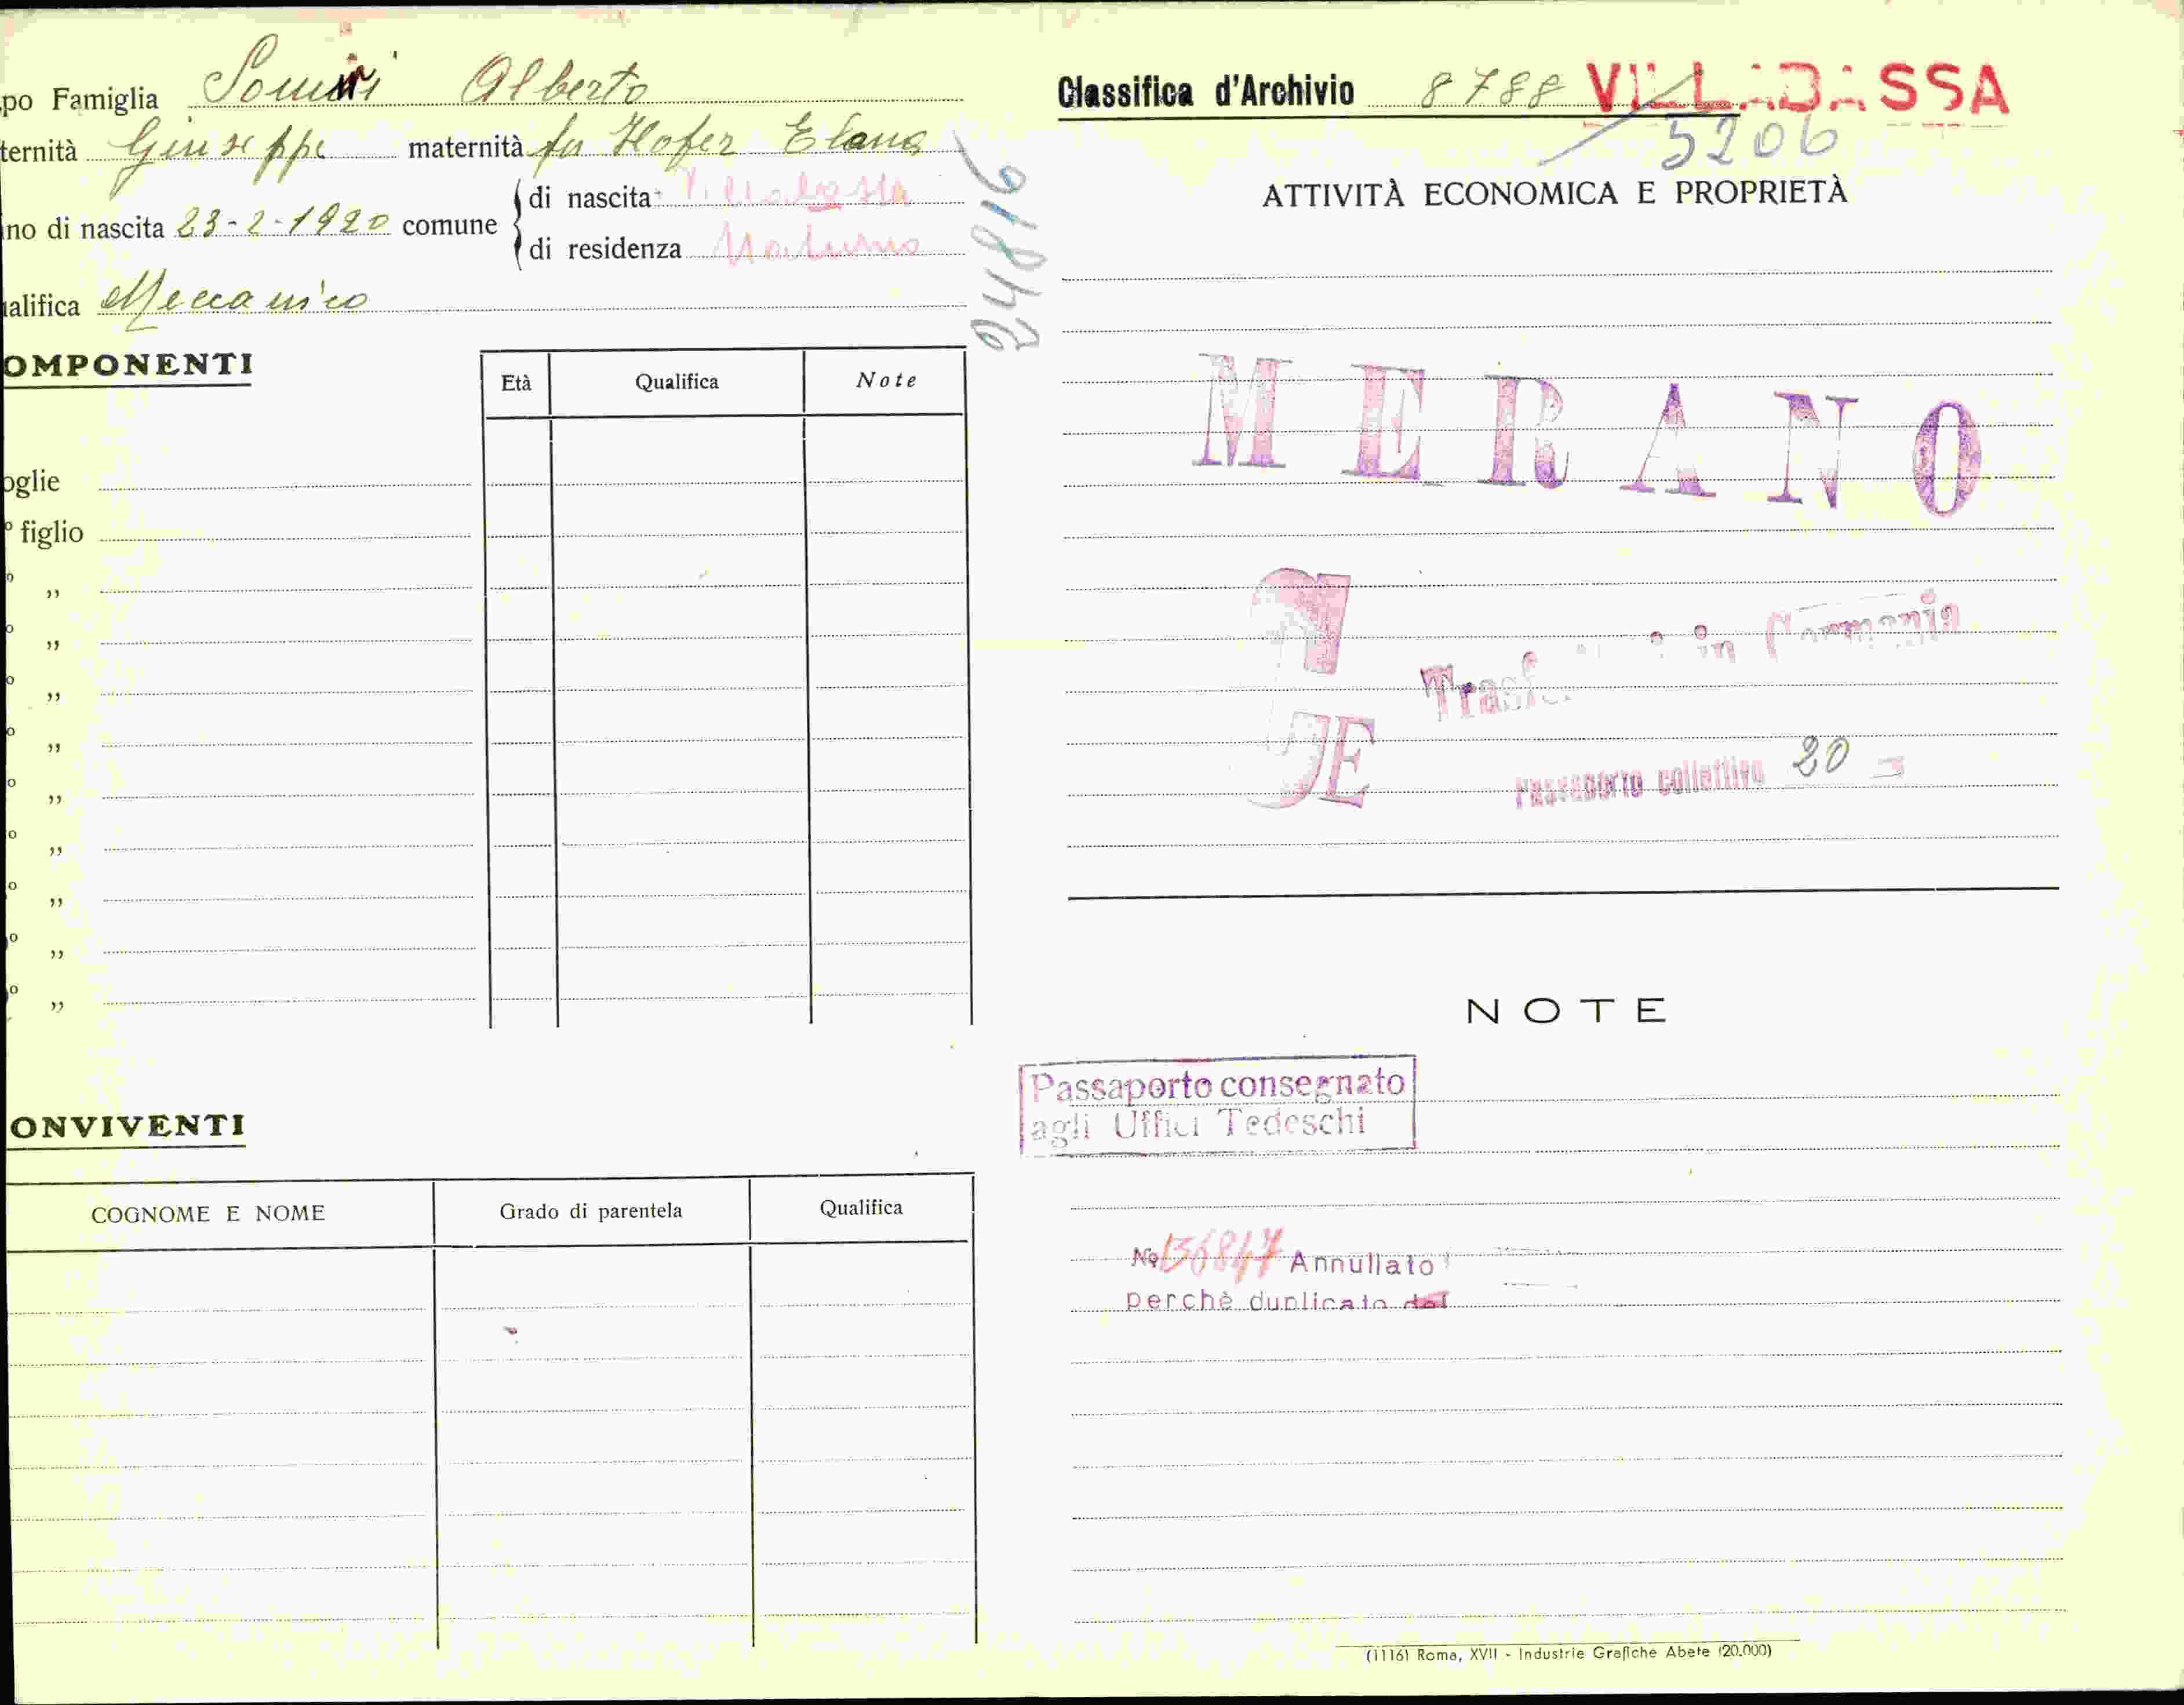 po Famiglia Alberto
ternità Giuseppe maternità fu Hofer Elena
no di nascita 23-2-1920 comune
di nascita Villabassa
di residenza Naturno
alifica Meccanico
24816
OMPONENTI
Età Qualifica Note
oglie
º figlio
º „
º „
º „
º „
º „
º „
º „
º „
º „
ONVIVENTI
COGNOME E NOME Grado di parentela Qualifica
Classifica d'Archivio 8788 VILLABASSA
5206
ATTIVITÀ ECONOMICA E PROPRIETÀ
MERANO
in Germania
Passaporto collettivo 20
NOTE
Passaporto consegnato
agli Uffici Tedeschi
No 136847 Annullato
perchè duplicato del
(11161 Roma, XVII - Industrie Grafiche Abete (20.000)